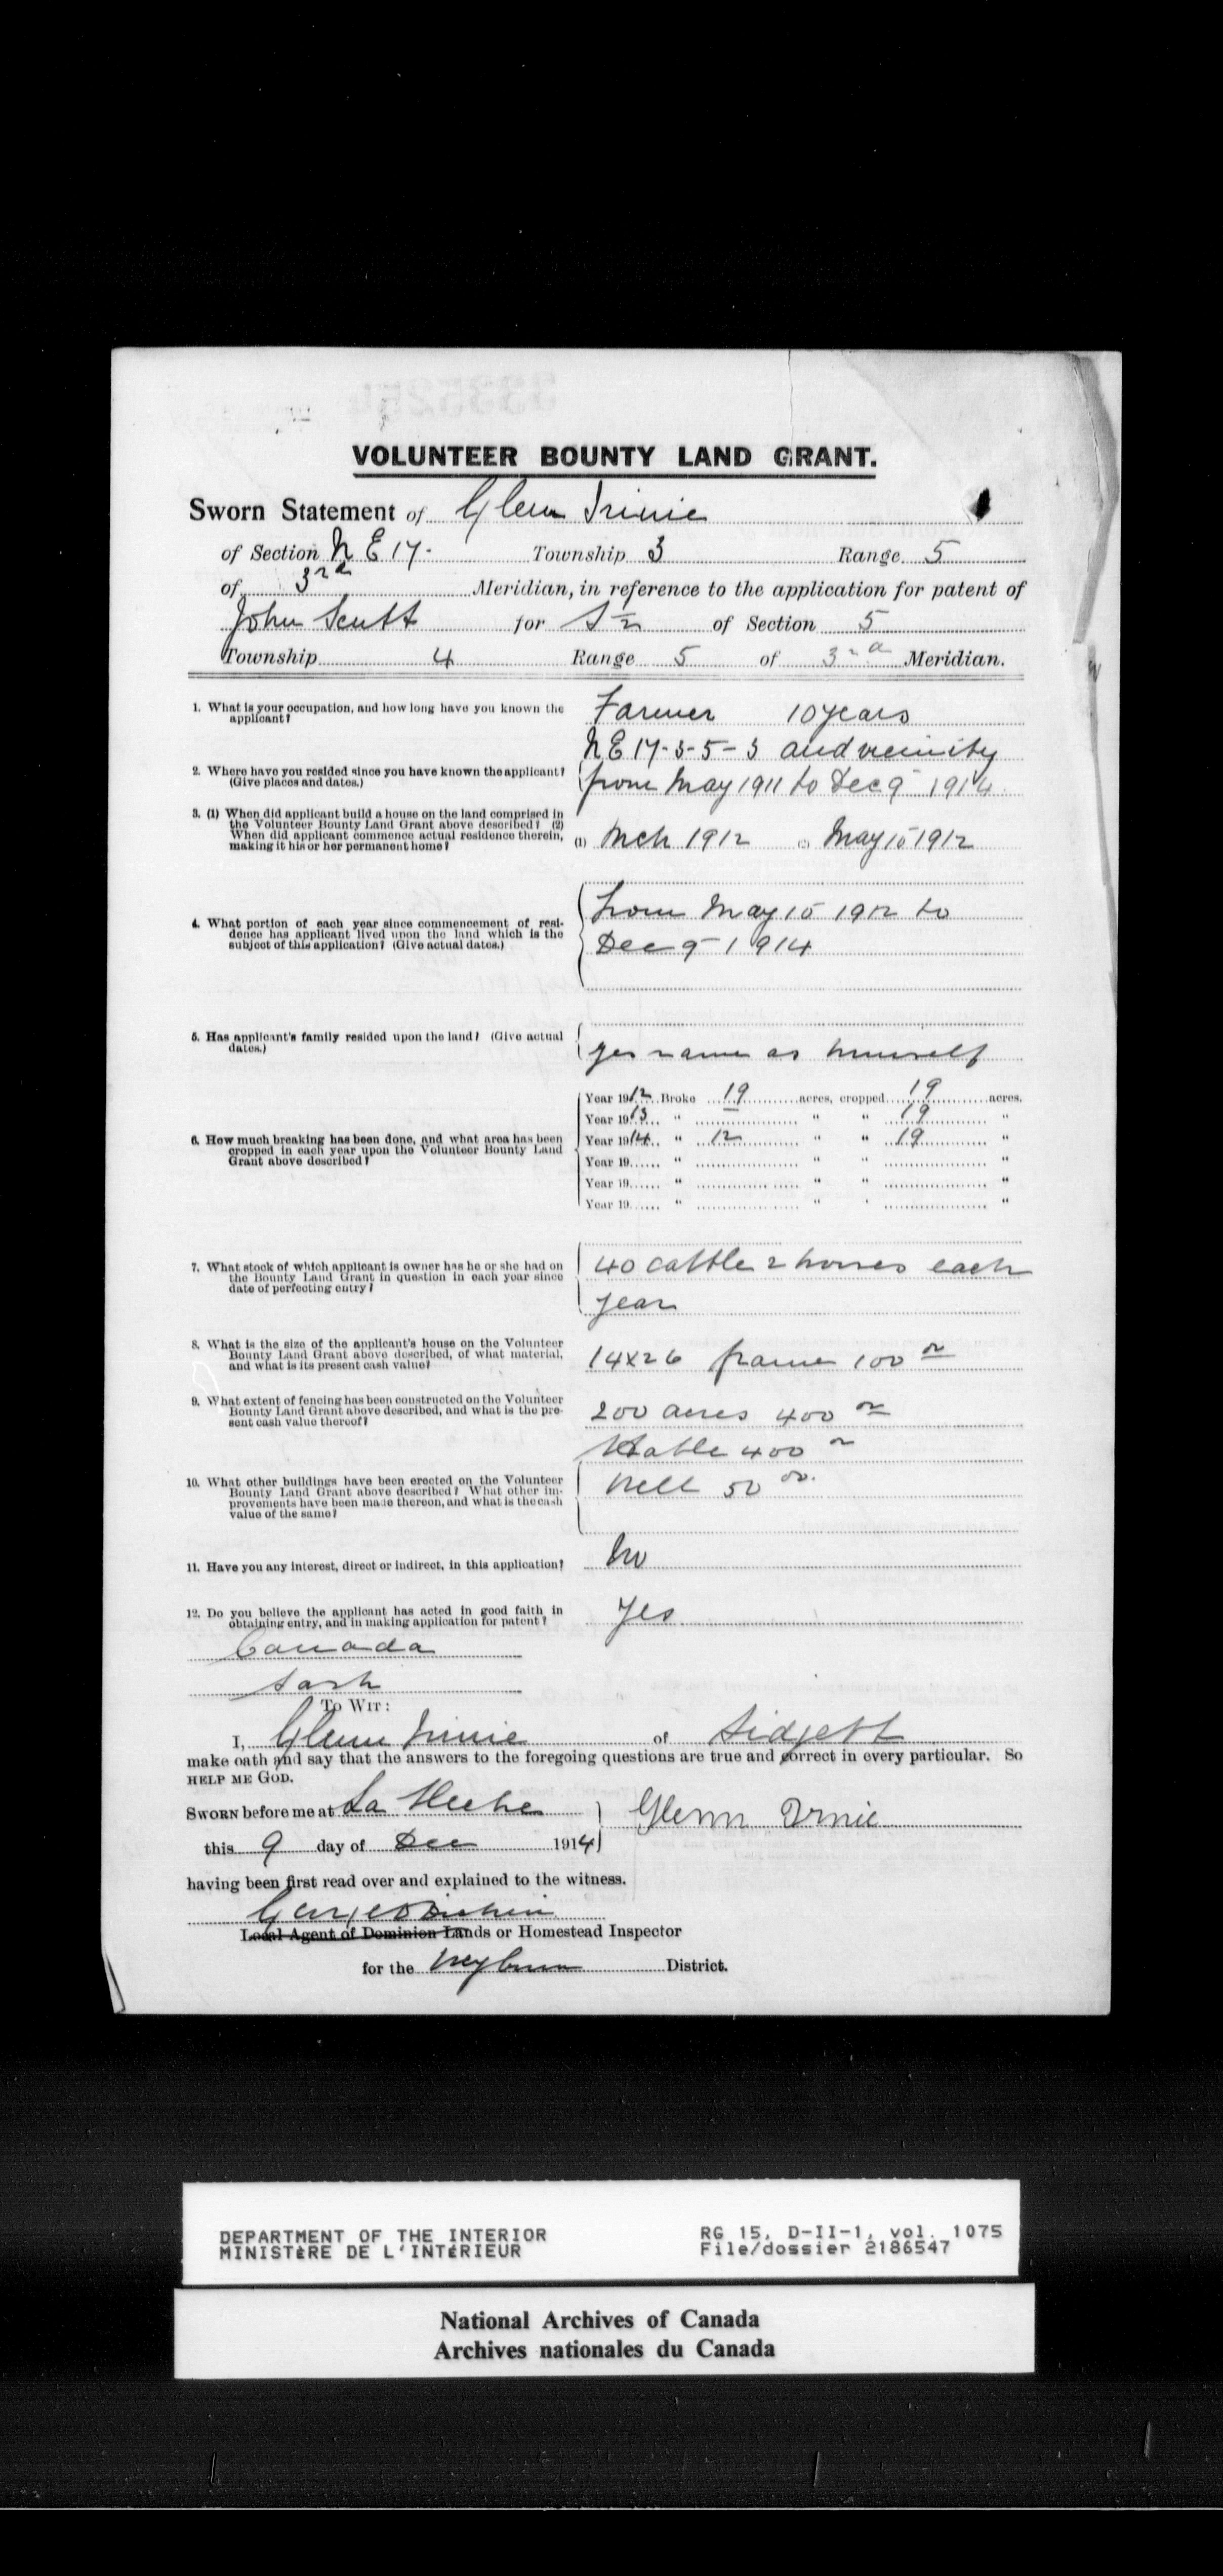 VOLUNTEER BOUNTY LAND GRANT.
Sworn Statement of Glenn
of Section N E 17- Township 3 Range 5
of 3rd Meridian, in reference to the application for patent of
John Scutt for S ½ of Section 5
Township 4 Range 5 of 3rd Meridian.
1. What is your occupation, and how long have you known the applicant? Farmer 10 years
N E 17-3-5-3 and vicinity
2. Where have you resided since you have known the applicant? (Give places and dates.) from May 1911 to Dec 9 1914
3. (1) When did applicant build a house on the land comprised in
the Volunteer Bounty Land Grant above described? (2)
When did applicant commence actual residence therein,
making it his or her permanent home? (1) Mch 1912 (2) May 15 1912
4. What portion of each year since commencement of resi-
dence has applicant lived upon the land which is the
subject of this application? (Give actual dates.)
from May 15 1912 to
Dec 9 - 1914
5. Has applicant's family resided upon the land? (Give actual
dates.) yes same as himself
6. How much breaking has been done, and what area has been
cropped in each year upon the Volunteer Bounty Land
Grant above described?
Year 1912 Broke 19 acres, cropped 19 acres.
Year 1913 " — " " 19 "
Year 1914 " 12 " " 19 "
Year 19 " " " "
Year 19 " " " "
Year 19 " " " "
7. What stock of which applicant is owner has he or she had on
the Bounty Land Grant in question in each year since
date of perfecting entry?
40 cattle 2 horses each
year
8. What is the size of the applicant's house on the Volunteer
Bounty Land Grant above described, of what material,
and what is its present cash value? 14x26 frame 100 00
9. What extent of fencing has been constructed on the Volunteer
Bounty Land Grant above described, and what is the pre-
sent cash value thereof? 200 acres 400 00
Stable 400 00
10. What other buildings have been erected on the Volunteer
Bounty Land Grant above described? What other im-
provements have been made thereon, and what is the cash
value of the same?
Well 50 00.
11. Have you any interest, direct or indirect, in this application? No
12. Do you believe the applicant has acted in good faith in
obtaining entry, and in making application for patent? Yes
Canada
Sask
To Wit:
I, Glenn of
make oath and say that the answers to the foregoing questions are true and correct in every particular. So
HELP ME GOD.
SWORN before me at
Glenn
this 9 day of Dec 1914
having been first read over and explained to the witness.
Local Agent of Dominion Lands or Homestead Inspector
for the Weyburn District.
DEPARTMENT OF THE INTERIOR
MINISTÈRE DE L'INTÉRIEUR
RG 15, D-II-1, vol. 1075
File/dossier 2186547
National Archives of Canada
Archives nationales du Canada